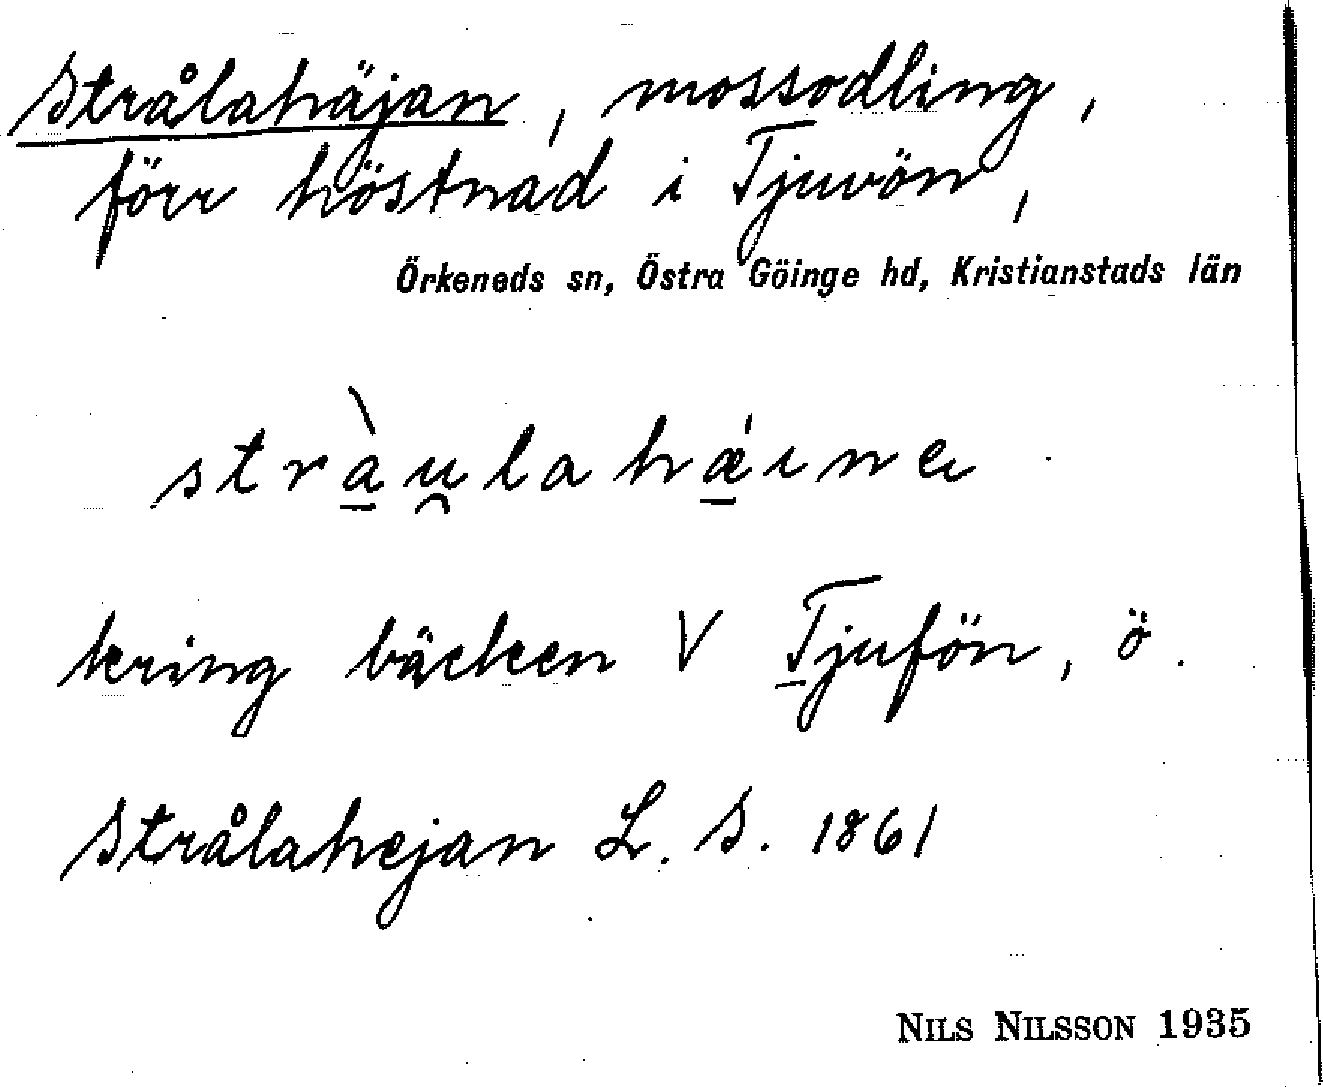 Strålahäjan, mossodling,
förr höstnad i Tjuvön,
Örkeneds sn, Östra Göinge hd, Kristianstads län
strà̱u̯laha̱ǽına
kring bäcken V Tjufön, ö.
Strålahejan L. S. 1861
NILS NILSSON 1935